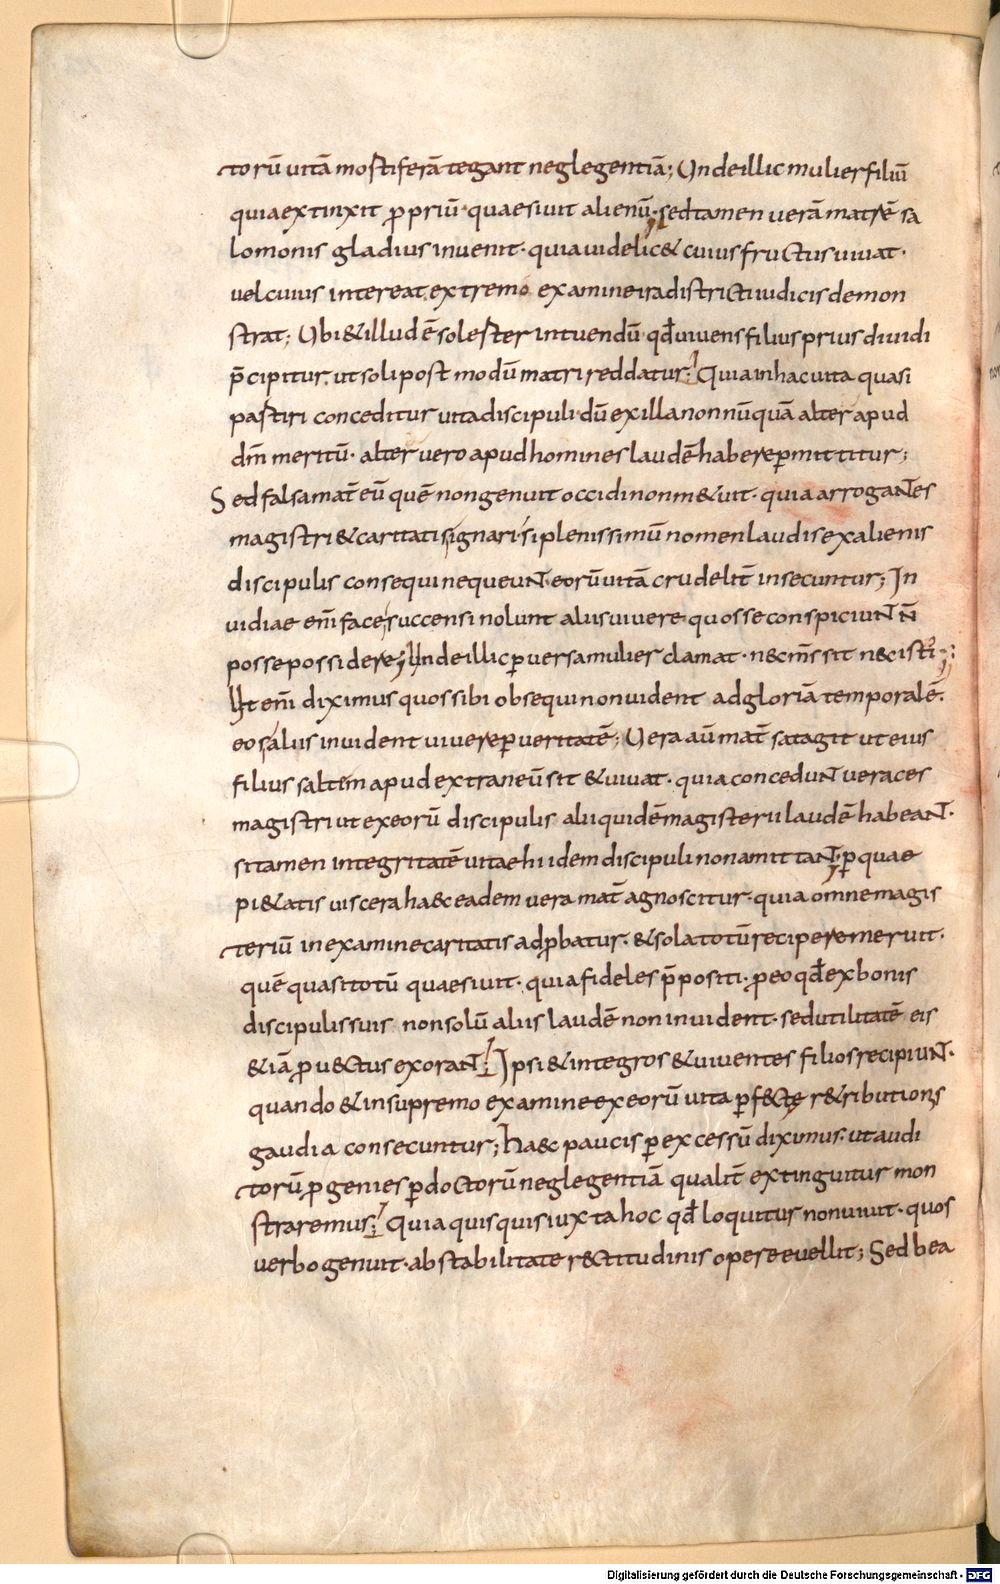 torū uitā mortiferā tegant neglegentiā; Unde illic mulier filiū
quia extinxit ꝓpriū· quaesiuit alienū· sed tamen uerā matrē sa
lomonis gladius inuenit· quia uidelic& cuius fructus uiuat·
uel cuius intereat, extremo examine ira districti iudicis demon
strat; Ubi & illud ē solerter intuendū· qđ uiuens filius prius diuidi
p̄cipitur, ut soli post modū matri reddatur; Quia in hac uita quasi
partiri conceditur uita discipuli· dū ex illa non nūquā alter apud
dm̄ meritū· alter uero apud homines laudē habere ꝑmittitur;
Sed falsa mat̄ eū quē non genuit occidi non m&uit· quia arrogantes
magistri & caritatis ignari· si plenissimū nomen laudis ex alienis
discipulis consequi nequeunt· eorū uitā crudelit̄ insecuntur; In
uidiae em̄ face succensi nolunt alius uiuere quos se conspiciunt n̄
posse possidere; Unde illic ꝑuersa mulier clamat· nec m̄s sit nec isti·;
Ut em̄ diximus quos sibi obsequi non uident ad gloriā temporalē·
eos alius inuident uiuere ꝑ ueritatē; Uera aū mat̄ satagit ut eius
filius saltim apud extraneū sit & uiuat· quia concedunt ueraces
magistri ut ex eorū discipulis alii quidē magisterii laudē habeant·
si tamen integritatē uitae hiidem discipuli non amittant· ꝑ quae
pi&atis uiscera haec eadem uera mat̄ agnoscitur· quia omne magis
teriū in examine caritatis adꝓbatur· & sola totū recipere meruit·
quē quasi totū quaesiuit· quia fideles p̄positi· ꝓ eo qđ ex bonis
discipulis suis non solū aliis laudē non inuident· sed utilitatē eis
&iā ꝓuectus exorant; Ipsi & integros & uiuentes filios recipiunt·
quando & in supremo examine ex eorū uita ꝑfectę r&ributionis
gaudia consecuntur; haec paucis ꝑ excessū diximus· ut audi
torū ꝓgenies ꝑ doctorū neglegentiā qualit̄ extinguitur mon
straremus; Quia quisquis iuxta hoc qđ loquitur non uiuit· quos
uerbo genuit· ab stabilitate rectitudinis opere euellit; Sed bea
Digitalisierung gefördert durch die Deutsche Forschungsgemeinschaft - DFG